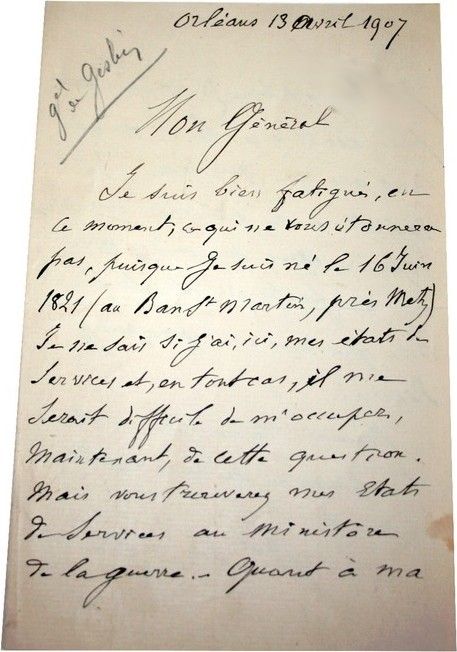 Orléans 13 avril 1907
gal de Geslin
Mon Général
Je suis bien fatigué, en
ce moment, ce qui ne vous étonnera
pas, puisque Je suis né le 16 Juin
1821 (au Ban St Martin, près Metz)
Je ne sais si j'ai, ici, mes états de
Services et, en tout cas, il me
Serait difficile de m'occuper,
Maintenant, de cette question.
Mais vous trouverez mes Etats
de Services au Ministère
de la guerre. - Quant à ma